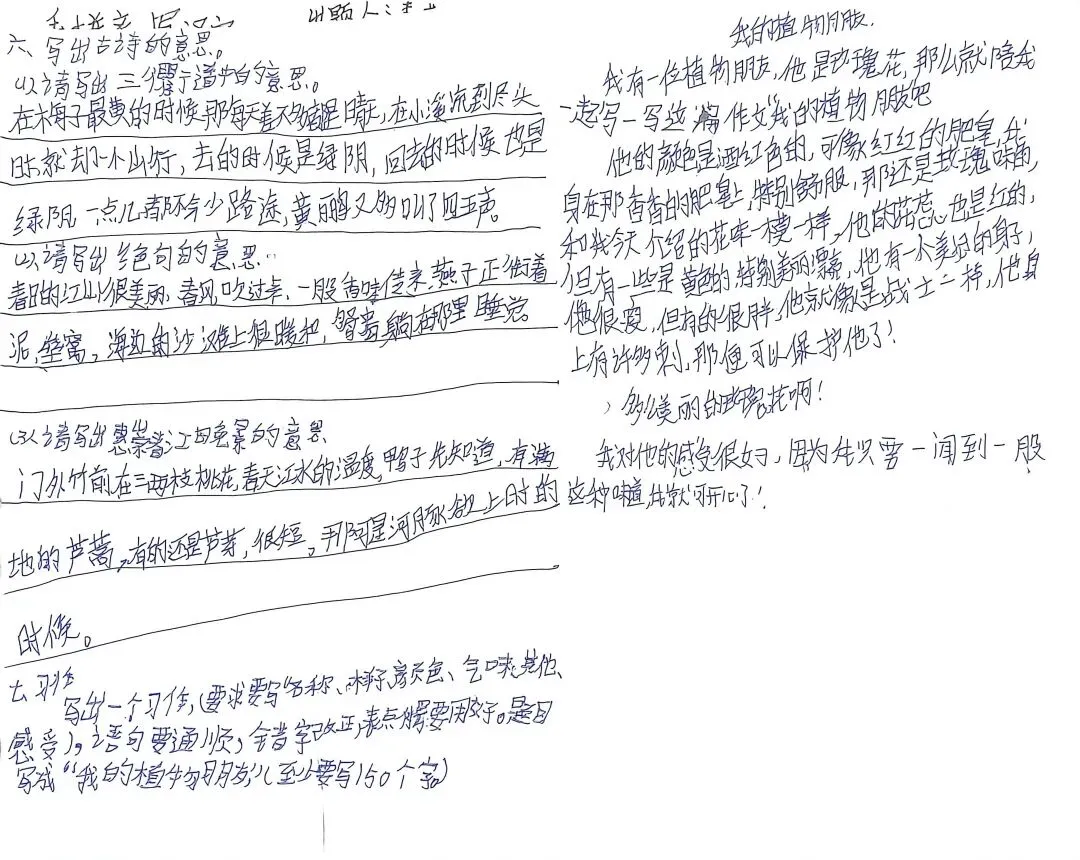 出题人:
六、写出古诗的意思。
(1)、请写出三衢道中的意思。
在梅子最黄的时候,那每天差不多都是晴天,在小溪流到尽头
时就去小山行,去的时候是绿阴,回去的时候也是
绿阴一点儿都不会少路途,黄鹂又多叫了四五声。
(2)、请写出绝句的意思。
春日的江山很美丽,春风吹过来,一股香味传来,燕子正衔着
泥,垒窝,海边的沙滩上很暖和,鸳鸯躺在那里睡觉。
(3)、请写出惠崇春江晚景的意思
门外竹前在三两枝桃花,春天江水的温度,鸭子先知道,有满
地的芦蒿,有的还是芦芽,很短,那可是河豚欲上时的
时候。
七、习作
写出一个习作,(要求要写名称、样子、颜色、气味、其他、
感受),语句要通顺,错字改正,标点符号要用好。题目
写成“我的植物朋友”(至少要写150个字)
我的植物朋友
我有一位植物朋友,他是玫瑰花,那么就陪我
一起写一写这篇作文“我的植物朋友吧
他的颜色是酒红色的,可像红红的肥皂,我
身在那香香的肥皂上,特别舒服,那还是玫瑰味的,
和我今天介绍的花味一模一样,他的花蕊也是红的,
但有一些是黄色的,特别美丽漂亮,他有一个美丽的身子,
他很瘦,但有的很胖,他就像是战士一样,他身
上有许多刺,那便可以保护他了!
多么美丽的玫瑰花啊!
我对他的感受很好,因为我只要一闻到一股
这种味道,我就可开心了!